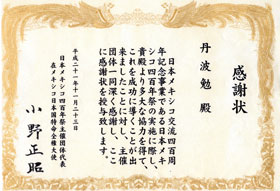 感謝状
丹波勉 殿
日本メキシコ交流四百周
年記念事業である日本メキ
シコ四百年祭の実施に際し、
貴殿より多大な協力を得て、
これを成功に導くことが出
来ましたことに対し、主催
団体一同深く感謝し、ここ
に感謝状を授与致します。
平成二十一年十一月二十三日
日本メキシコ四百年祭主催団体代表
在メキシコ日本国特命全権大使
小野正昭